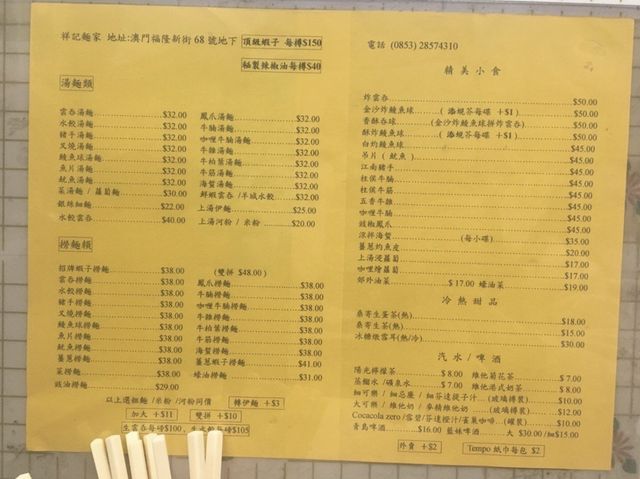 祥記麵家 地址:澳門福隆新街 68 號地下 頂級蝦子 每樽$150
秘製辣椒油每樽$40
湯麵類
雲吞湯麵 $32.00
水餃湯麵 $32.00
豬手湯麵 $32.00
叉燒湯麵 $32.00
鯪魚球湯麵 $32.00
魚片湯麵 $32.00
魷魚湯麵 $32.00
菜湯麵 / 蘿蔔麵 $30.00
銀絲細麵 $22.00
水餃雲吞 $40.00
鳳爪湯麵 $32.00
牛腩湯麵 $32.00
咖喱牛腩湯麵 $32.00
牛雜湯麵 $32.00
牛柏葉湯麵 $32.00
牛筋湯麵 $32.00
海蜇湯麵 $32.00
鮮蝦雲吞 /羊城水餃 $32.00
上湯伊麵 $25.00
上湯河粉 / 米粉 $20.00
撈麵類
招牌蝦子撈麵 $38.00
雲吞撈麵 $38.00
水餃撈麵 $38.00
豬手撈麵 $38.00
叉燒撈麵 $38.00
鯪魚球撈麵 $38.00
魚片撈麵 $38.00
魷魚撈麵 $38.00
薑蔥撈麵 $38.00
菜撈麵 $38.00
豉油撈麵 $29.00
(雙拼 $48.00)
鳳爪撈麵 $38.00
牛腩撈麵 $38.00
咖喱牛腩撈麵 $38.00
牛雜撈麵 $38.00
牛柏葉撈麵 $38.00
牛筋撈麵 $38.00
海蜇撈麵 $38.00
薑蔥蝦撈麵 $41.00
蠔油撈麵 $31.00
以上選粗麵 /米粉 /河粉同價 轉伊麵 +$3
加大 +$11 雙拼 +$10
生雲吞每磅$100、生水餃每磅$105
電話 (0853) 28574310
精 美 小 食
炸雲吞 $50.00
金沙炸鯪魚球 ( 添蜆芥每碟 +$1) $50.00
香酥吞球 (金沙炸鯪魚球拼炸雲吞) $50.00
酥炸鯪魚球 ( 添蜆芥每碟 +$1) $50.00
白灼鯪魚球 $45.00
吊片 ( 魷魚 ) $45.00
江南豬手 $45.00
柱侯牛腩 $45.00
柱侯牛筋 $45.00
五香牛雜 $45.00
咖喱牛腩 $45.00
豉椒鳳爪 $45.00
涼拌海蜇 (每小碟) $35.00
薑蔥灼魚皮 $20.00
上湯浸蘿蔔 $17.00
咖喱燴蘿蔔 $17.00
郊外油菜 $17.00 蠔油菜 $19.00
冷 熱 甜 品
桑寄生蛋茶(熱) $18.00
桑寄生茶(熱) $15.00
冰糖燉雪耳(熱/冷) $30.00
汽 水 / 啤 酒
陽光檸檬茶 $ 8.00 維他菊花茶 $ 7.00
蒸餾水 / 礦泉水 $ 7.00 維他港式奶茶 $ 8.00
細可樂 / 細忌廉 / 細芬達提子汁 (玻璃樽裝) $10.00
大可樂 / 維他奶 / 麥精維他奶 (玻璃樽裝) $12.00
Cocacola zero /雪碧/芬達橙汁/雀巢咖啡 (罐裝) $10.00
青島啤酒 $16.00 藍妹啤酒 大 $30.00 /細$15.00
外賣 +$2 Tempo 紙巾每包 $2